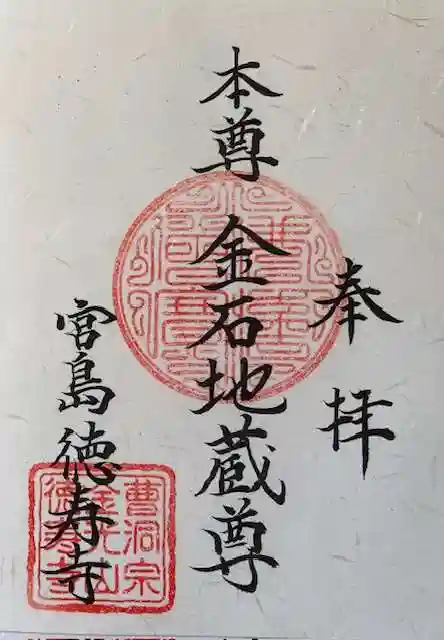 奉拝
本尊 金石地蔵尊
宮島徳寿寺
曹洞宗
金光山
徳寿寺